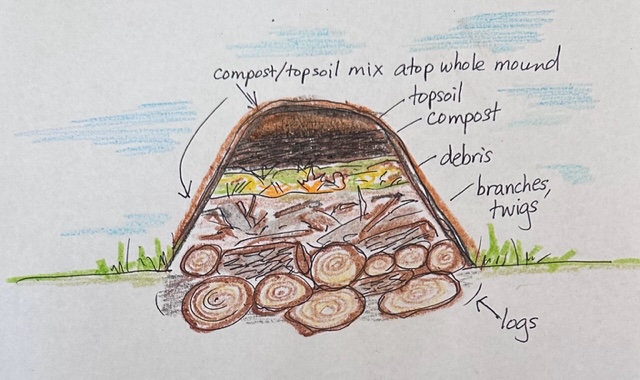 compost/topsoil mix atop whole mound
topsoil
compost
debris
branches,
twigs
logs